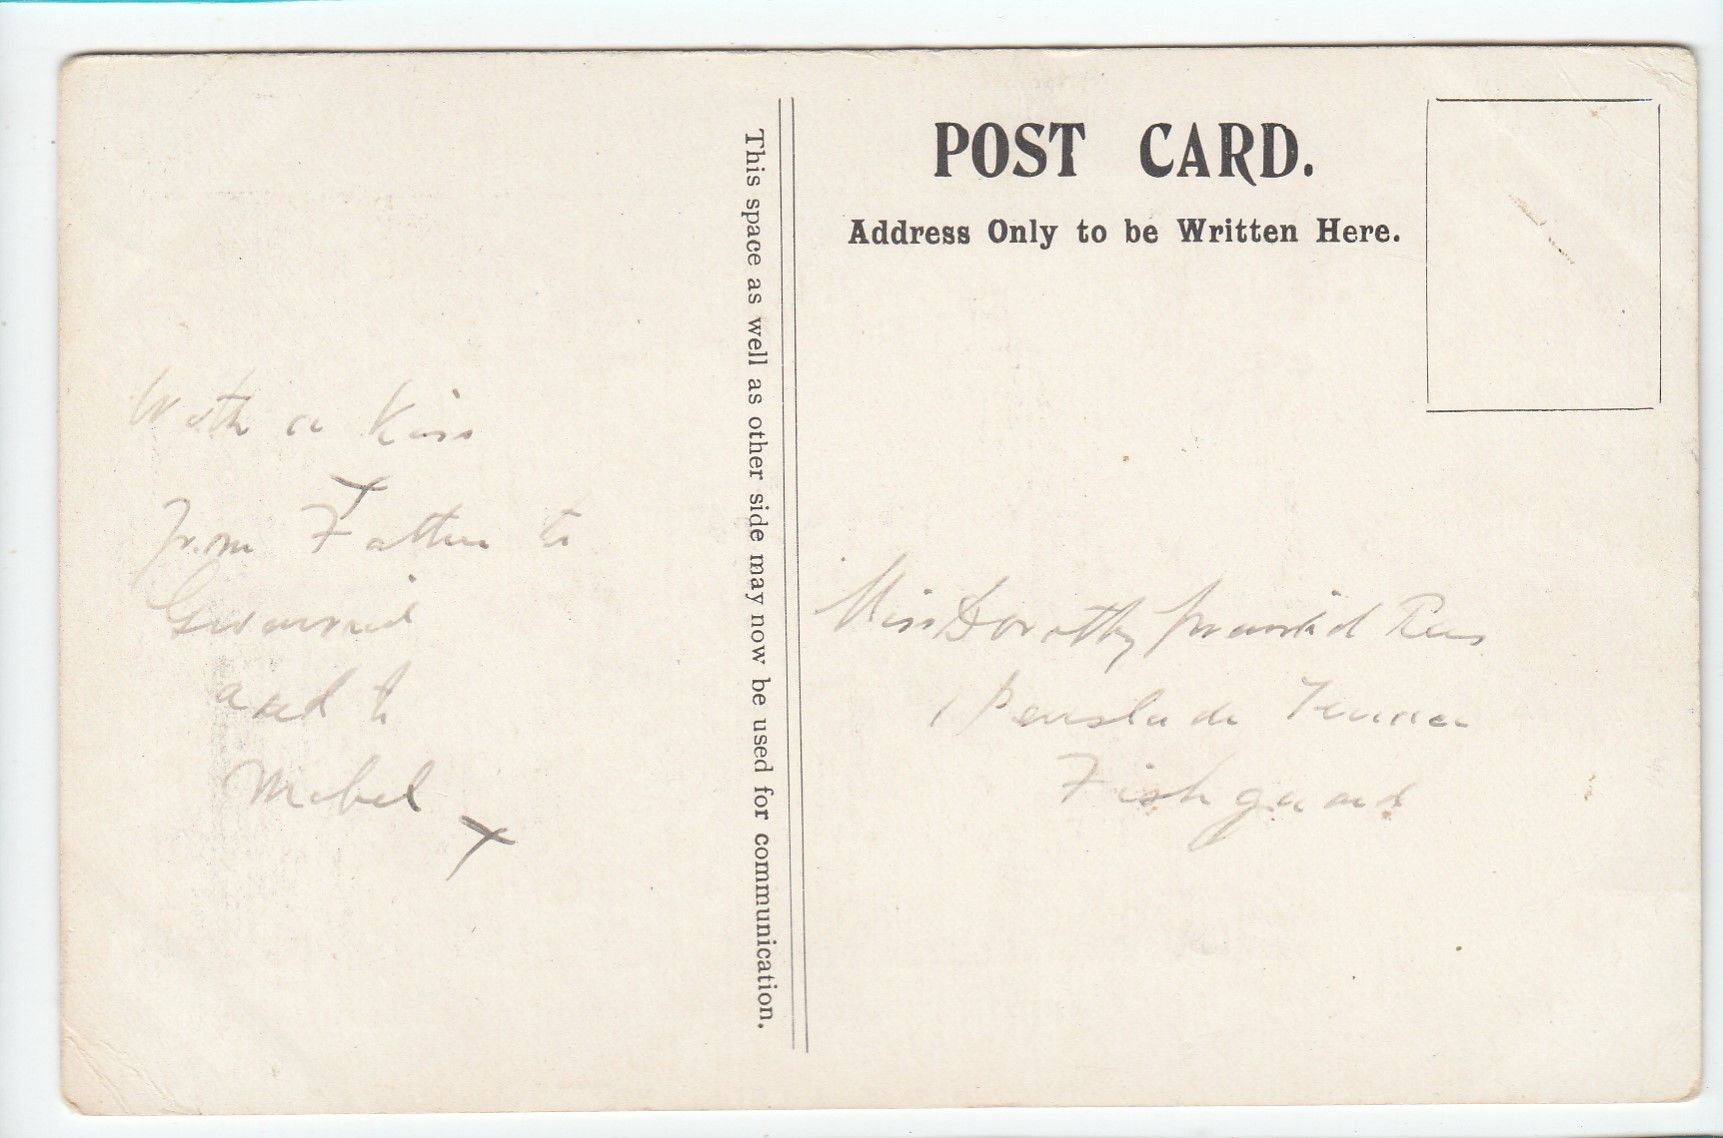 POST CARD.
Address Only to be Written Here.
This space as well as other side may now be used for communication.
With a Kiss
x
from Father to
and to
Mabel x
Miss Dorothy Rees
1 Penslade Terrace
Fishguard